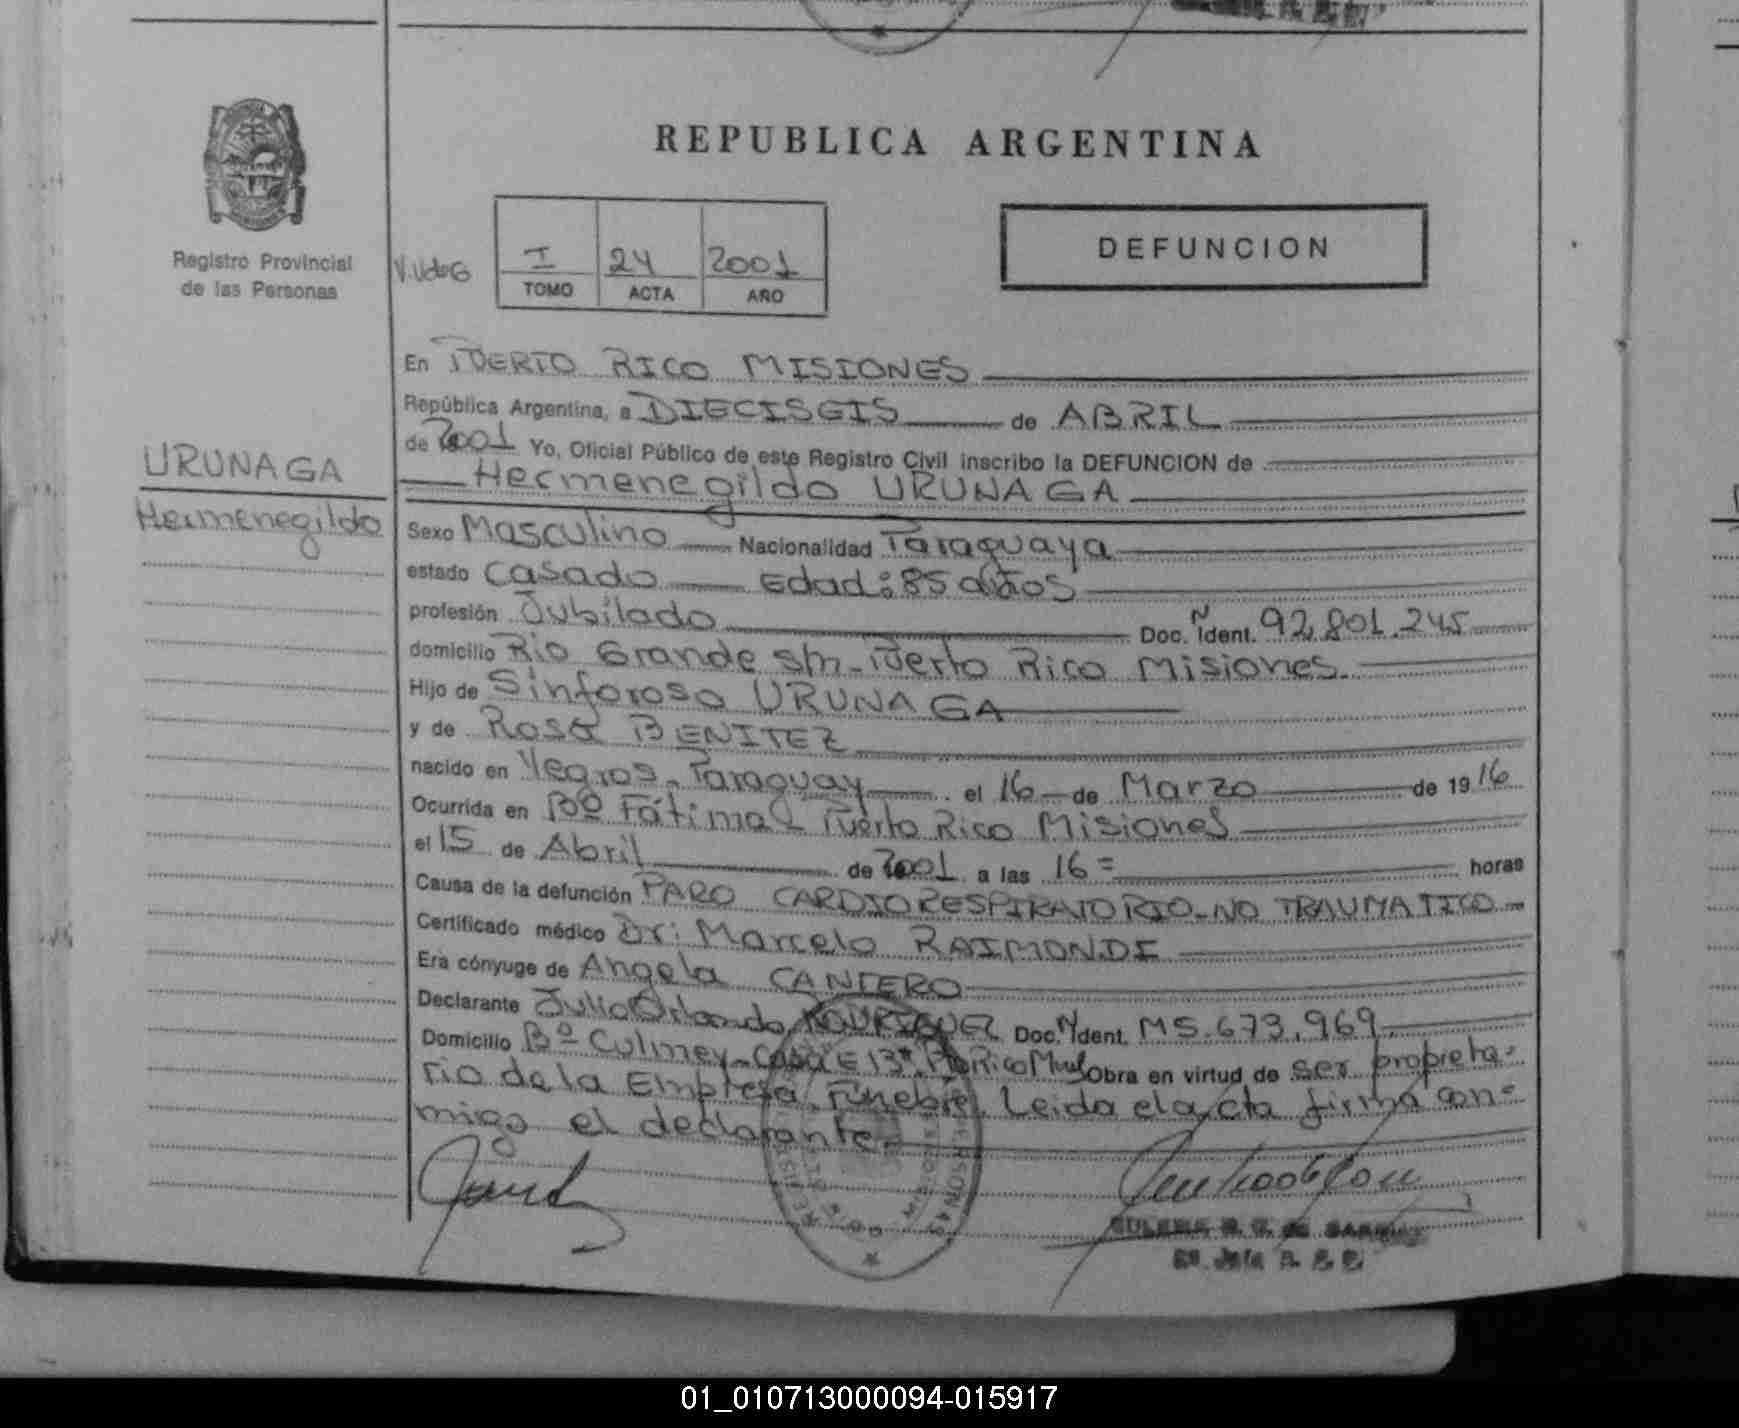 REPUBLICA ARGENTINA
Registro Provincial
de las Personas
I 24 2001
TOMO ACTA AÑO
DEFUNCION
En PUERTO RICO MISIONES
República Argentina, a DIECISEIS de ABRIL
de 2001 Yo, Oficial Público de este Registro Civil inscribo la DEFUNCION de
Hermenegildo URUNAGA
URUNAGA
Hermenegildo
Sexo Masculino Nacionalidad Paraguaya
estado Casado Edad: 85 años
profesión Jubilado Doc. Ñ Ident. 92.801.245
domicilio Rio Grande s/n - Puerto Rico Misiones.
Hijo de Sinforoso URUNAGA
y de Rosa BENITEZ
nacido en Yegros - Paraguay el 16 de Marzo de 1916
Ocurrida en Bº Fátima - Puerto Rico Misiones
el 15 de Abril de 2001 a las 16= horas
Causa de la defunción PARO CARDIORESPIRATORIO - NO TRAUMATICO
Certificado médico Dr: Marcelo RAIMONDI
Era cónyuge de Angela CANTERO
Declarante Julio Orlando Doc. Ident. M5.673.969
Domicilio Bº Culmey - Casa E 13 Pto Rico Obra en virtud de ser propieta-
rio de la Empresa Funebre. Leida el acta firma con-
migo el declarante
01_010713000094-015917